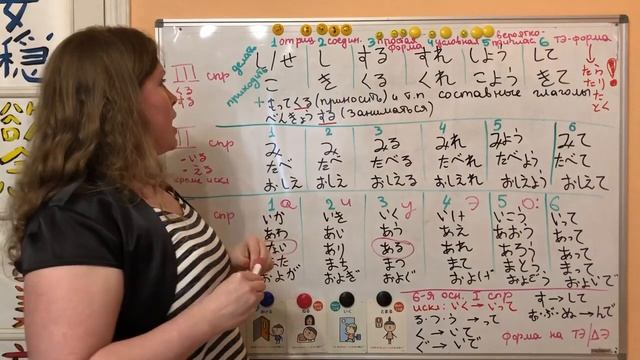 1 отриц. 2 соедин. 3 простая форма 4 условная 5 вероятно-приглас. 6 ТЭ-форма
делать し/せ し する すれ しよう して
приходить こ き くる くれ こよう きて
III спр くる する
たら たり た とく !
+ もってくる (приносить) и т.п составные глаголы
べんきょうする (заниматься)
1 2 3 4 5 6
II спр み み みる みれ みよう みて
-いる たべ たべ たべる たべれ たべよう たべて
-える кроме искл おしえ おしえ おしえる おしえれ おしえよう おしえて
спр 1 а 2 и 3 у 4 э 5 о: 6
いか いき いく いけ いこう いって
あわ あい あう あえ あおう あって
ない あり ある あれ あろう あって
また まち まつ まて まとう まって
およが およぎ およぐ およげ およごう およいで
6-я осн. I спр
искл: いく→いって す→して
る・つ・う→って む・ぶ・ぬ→んで
く→いて
ぐ→いで форма на ТЭ/ДЭ
安
穏